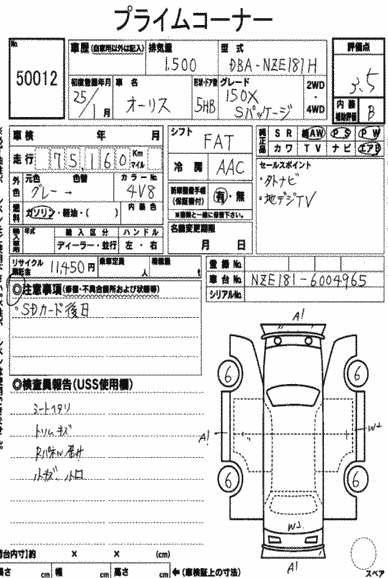 プライムコーナー
No. 50012
車歴 (自家用以外は記入) 排気量 型式 評価点
1.500 DBA-NZE181H 3.5
初度登録年月 車名 形状・ドア数 グレード 2WD 内装補助評価
25/1 オーリス 5HB 150X Sパッケージ 4WD B
車検 年 月 シフト FAT 純正品 SR 純AW PS PW
カワ TV ナビ エアB
走行 75,160 Km マイル 冷房 AAC セールスポイント
外色 元色 色替 カラーNo.
グレー → 4V8
・外ナビ
・地デジTV
燃料 ガソリン・軽油・( ) 内装色 新車整備手帳 (保証書付) 有・無
※書類と一緒に保管下さい。
輸入車 輸入区分 ハンドル 名義変更期限
ディーラー・並行 左・右 月 日
リサイクル預託金 11,450円 乗車定員 人 積載量 登録No.
車台No. NZE181-6004965
シリアルNo.
◎注意事項(修復・不具合個所および状態等)
・SDカード後日
◎検査員報告(USS使用欄)
シートヘタリ
トリムキズ
A1
6 6
A1 W2
6 6
W2
A1
スペア
荷台内寸) 約 × × (cm)
長さ cm 幅 cm 高さ cm ←(車検証上の寸法)